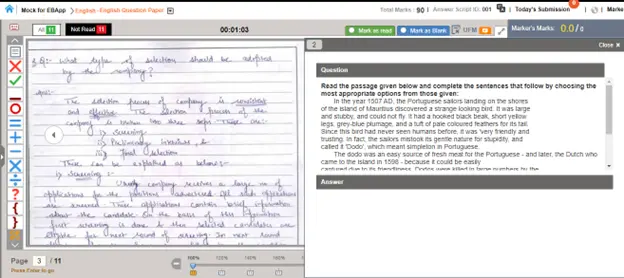 Mock for EBApp > English - English Question Paper
Total Marks : 90 | Answer Script ID. 001 | Today's Submission | Marke
All 11 Not Read 11 00:01:03 Mark as read Mark as Blank UFM Marker's Marks: 0.0 / 0
3.Q:- What type of selection should be adopted
by the company?
Ans:-
The selection process of company is consistent
and effective. The selection process of the
company is
i) Screening
ii) Preliminary Interview &
iii) Final selection
These can be explained as below:-
i) Screening :-
Usually company receives a large no of
applications for the positions advertised
are received. These applications contain brief information
about the candidate. On the basis of this information
first screening is done & then selected candidates are
eligible for next round of screening. In next round
Page 3 / 11
Press Enter to go
100% 125% 150%
2 Close ×
Question
Read the passage given below and complete the sentences that follow by choosing the
most appropriate options from those given:
In the year 1507 AD, the Portuguese sailors landing on the shores
of the island of Mauritius discovered a strange looking bird. It was large
and stubby, and could not fly. It had a hooked black beak, short yellow
legs, grey-blue plumage, and a tuft of pale coloured feathers for its tail.
Since this bird had never seen humans before, it was very friendly and
trusting. In fact, the sailors mistook its gentle nature for stupidity, and
called it 'Dodo', which meant simpleton in Portuguese.
The dodo was an easy source of fresh meal for the Portuguese - and later, the Dutch who
came to the island in 1598 - because it could be easily
captured due to its friendliness. Dodos were killed in large numbers by the
Answer